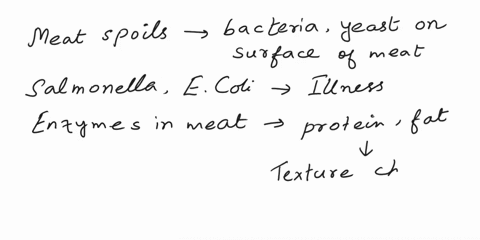 Meat spoils → bacteria, yeast on
surface of meat
Salmonella, E. Coli → Illness
Enzymes in meat → protein, fat
↓
Texture ch